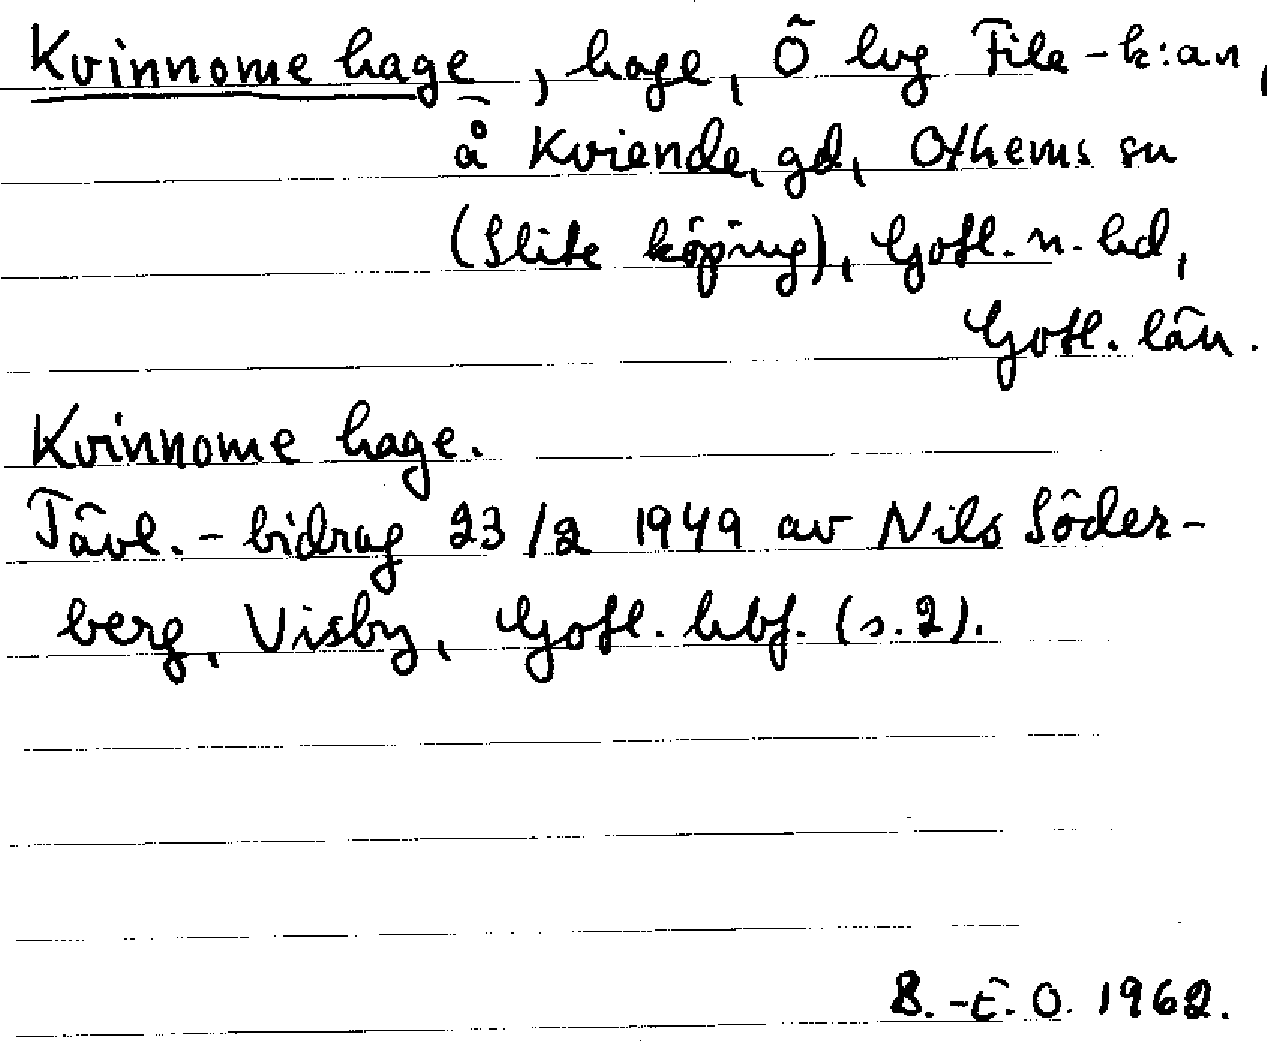 Kvinnome hage, hage, Ö lvg File-k:an,
å Kviende, gd, Othems sn
(Slite köping), Gotl. n. hd,
Gotl. län.
Kvinnome hage.
Tävl.-bidrag 23/2 1949 av Nils Söder-
berg, Visby, Gotl. hbf. (s.2).
B.-E. O. 1962.